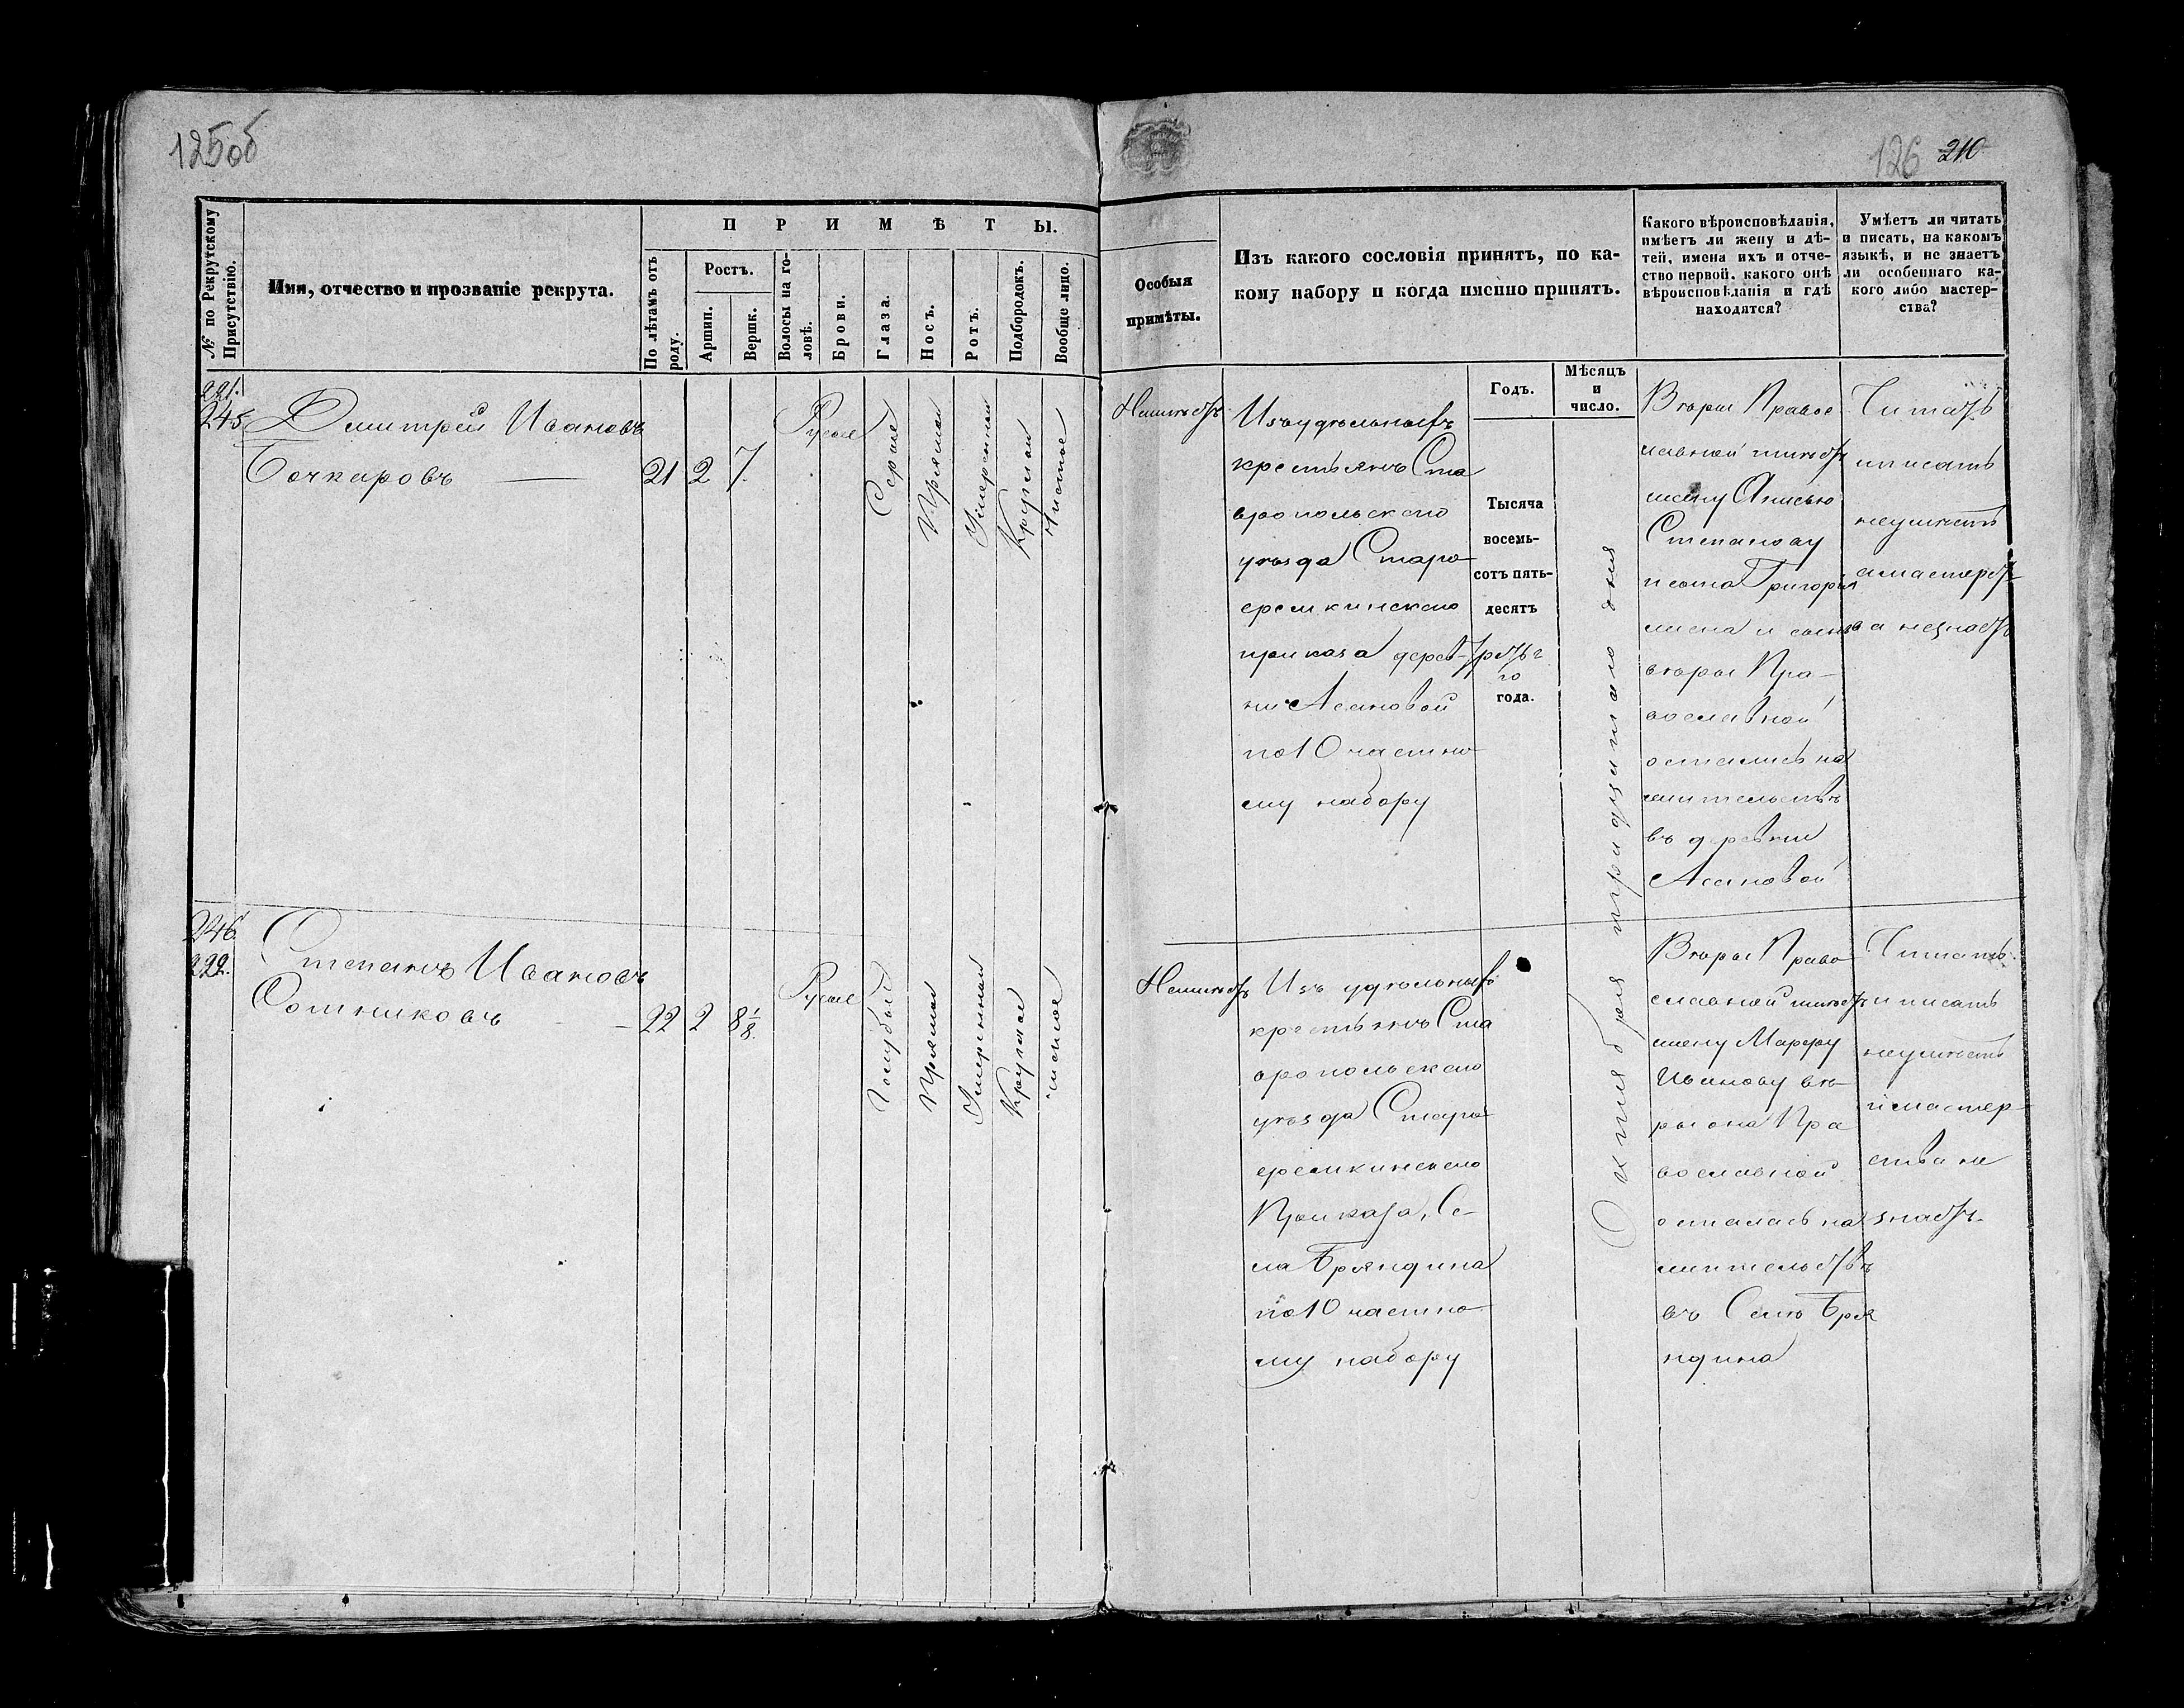 125об
126 210
№ по Рекрутскому Присутствію.
Имя, отчество и прозваніе рекрута.
ПРИМѢТЫ.
По лѣтамъ отъ роду.
Ростъ.
Аршин.
Вершк.
Волосы на головѣ.
Брови.
Глаза.
Носъ.
Ротъ.
Подбородокъ.
Вообще лицо.
Особыя
примѣты.
Изъ какого сословія принятъ, по ка-
кому набору и когда имянно принятъ.
Какого вѣроисповѣданія,
имѣетъ ли жену и дѣ-
тей, имена ихъ и отче-
ство первой, какого онѣ
вѣроисповѣданія и гдѣ
находятся?
Умѣетъ ли читать
и писать, на какомъ
языкѣ, и не знаетъ
ли особеннаго ка-
кого либо мастер-
ства?
Годъ.
Мѣсяцъ
и
число.
221.
245
Дмитрей Ивановъ
Бочкаровъ
21 2 7.
Русые
Серые
Прямой
Умеренной
Круглой
чистое
Неимѣетъ
Изъ удѣльныхъ
крестьянъ Ста
вропольскаго
уѣзда Старо
еремкинскаго
приказа дерев-
ни Асановой
по 10 частно
му набору
Тысяча
восемь-
сотъ пять-
десятъ
третьг
го
года.
Октября тридцатаго дня
Вѣры Правос
лавной имѣетъ
жену Анисью
Степанову
и сына Григорья
жена и сынъ
вѣры Пра-
вославной
остались на
жительствѣ
въ деревни
Асановой
Читать
и писать
неумѣетъ
а мастерст-
ва незнаетъ
246.
222.
Степанъ Ивановъ
Сотниковъ
22 2 8 1/8.
Русые
Голубые
Прямой
Умеренной
Круглой
чистое
Неимѣетъ
Изъ удѣльныхъ
крестьянъ Ста
вропольскаго
уѣзда Старо
еремкинскаго
Приказа, Се-
ла Бряндина
по 10 частно
му набору
Вѣры Право
славной имѣетъ
жену Марфу
Иванову вѣ-
ры она Пра
вославной
осталась на
жительствѣ
въ Селѣ Бря
ндина
Читать
и писать
неумѣетъ
и мастер-
ства не
знаетъ.